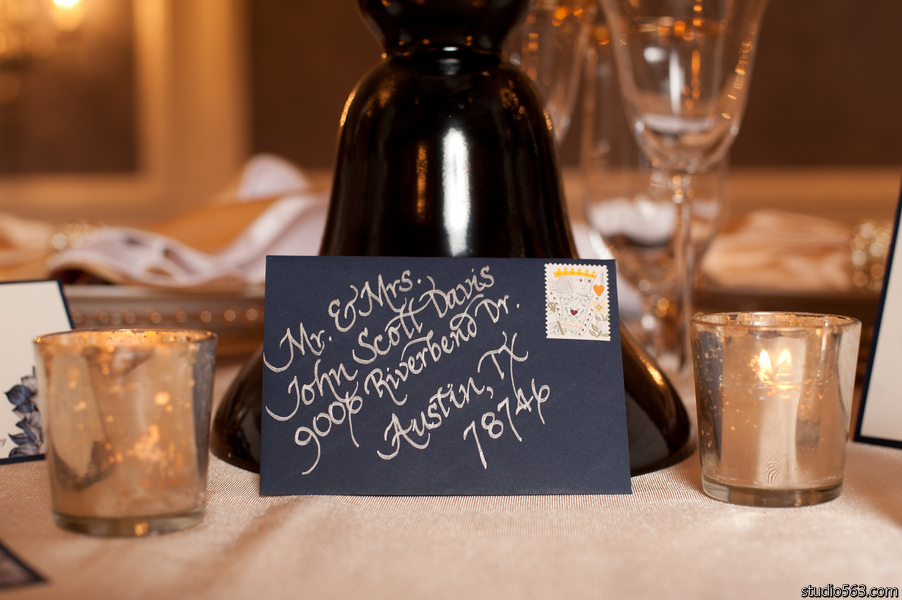 Mr. & Mrs.
John Scott Davis
9006 Riverbend Dr.
Austin, TX
78746
studio563.com